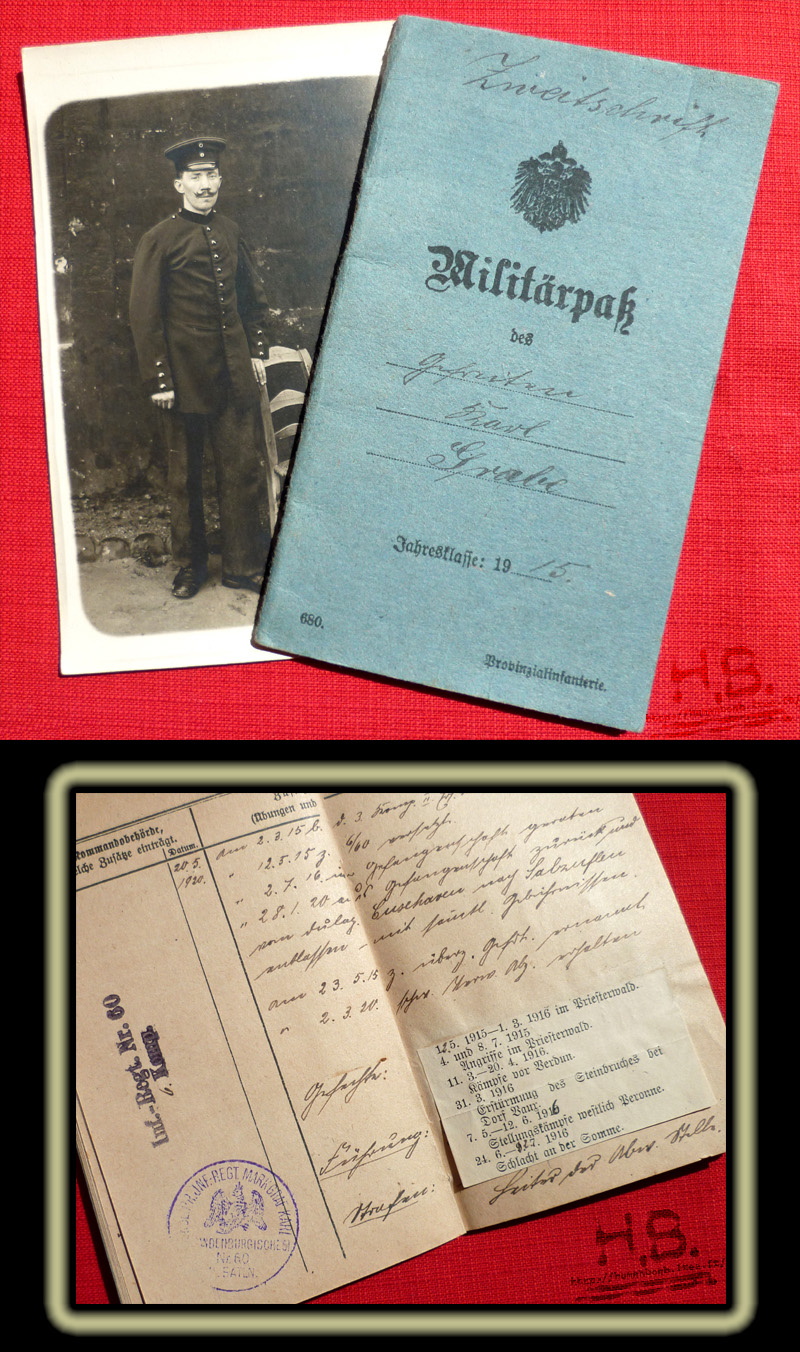 Zweitschrift
Militärpaß
des
Gefreiten
Karl
Grabe
Jahresklasse: 19 15.
680.
Provinzialinfanterie.
H.B.
Kommandobehörde,
liche Zusätze einträgt.
Datum.
20.5.
1920.
(Übungen und
am 2.3.15 b. d. 3. Komp.
" 12.5.15 z. 6/60 versetzt.
" 2.7.16 in Gefangenschaft geraten
" 28.1.20 aus Gefangenschaft zurück und
vom Dulag. Cuxhaven nach Salzuflen
entlassen – mit sämtl. Gebührnissen.
am 23.5.15 z. überz. Gefrt. ernannt
" 2.3.20. schw. Verw. Abz. erhalten
Inf.-Regt. Nr. 60
6. Komp.
Gefechte:
12.5. 1915—1. 3. 1916 im Priesterwald.
4. und 8. 7. 1915
Angriffe im Priesterwald.
11. 3.—20. 4. 1916.
Kämpfe vor Verdun.
31. 3. 1916
Erstürmung des Steinbruches bei
Dorf Vaux.
7. 5.—12. 6. 1916
Stellungskämpfe westlich Peronne.
24. 6.—2.7. 1916
Schlacht an der Somme.
Führung:
Strafen:
Leiter der Abw. Stelle.
INF. REGT. MARKGRAF KARL
Nr. 60
H.B.